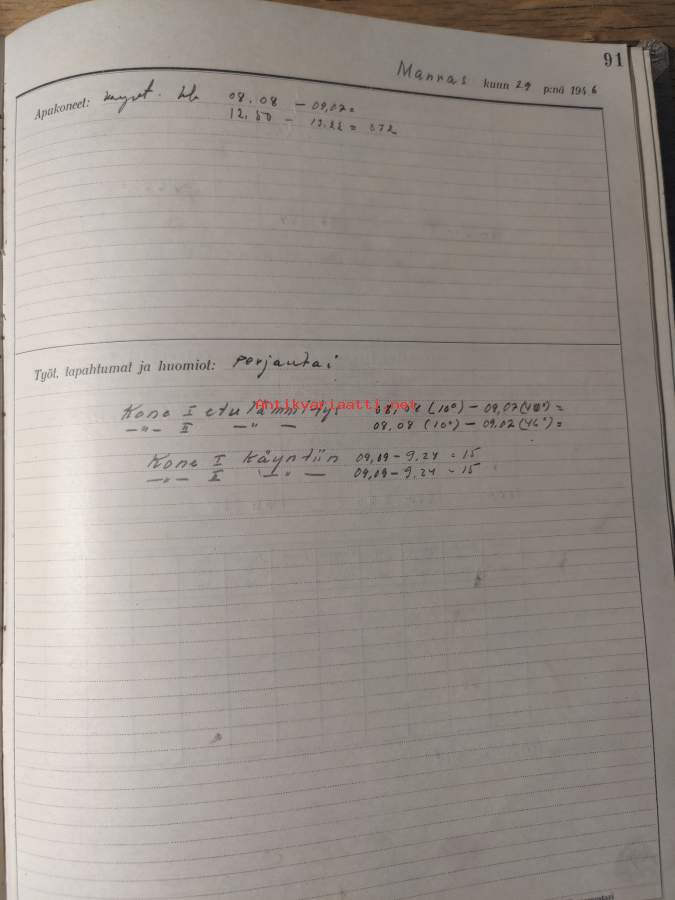 91
Marras kuun 29 p:nä 1946
Apukoneet: 08.08 – 09.02 =
12.50 – 13.22 = 0.32
Työt, tapahtumat ja huomiot: perjantai
Kone I etulämmitys 08.08 (10°) – 09.02 (48°) =
–"– II –"– 08.08 (10°) – 09.02 (46°) =
Antikvariaatti.net
Kone I Käyntiin 09.09 – 9.24 = 15
–"– II –"– 09.09 – 9.24 = 15